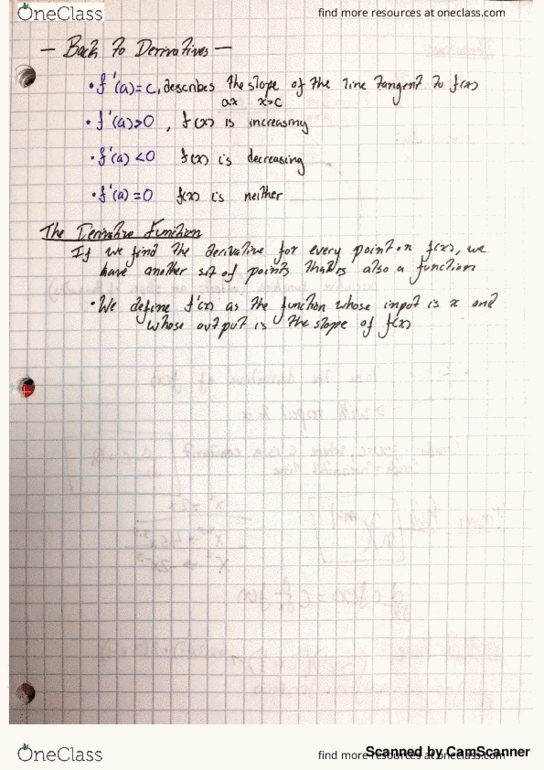 OneClass
find more resources at oneclass.com
— Back To Derivatives —
• f'(a)=c, describes the slope of the line tangent to f(x)
at x=c
• f'(a)>0, f(x) is increasing
• f'(a)<0 f(x) is decreasing
• f'(a)=0 f(x) is neither
The Derivative Function
If we find the derivative for every point on f(x), we
have another set of points that is also a function
• We define f'(x) as the function whose input is x and
whose output is the slope of f(x)
OneClass
find more resources at oneclass.com
Scanned by CamScanner